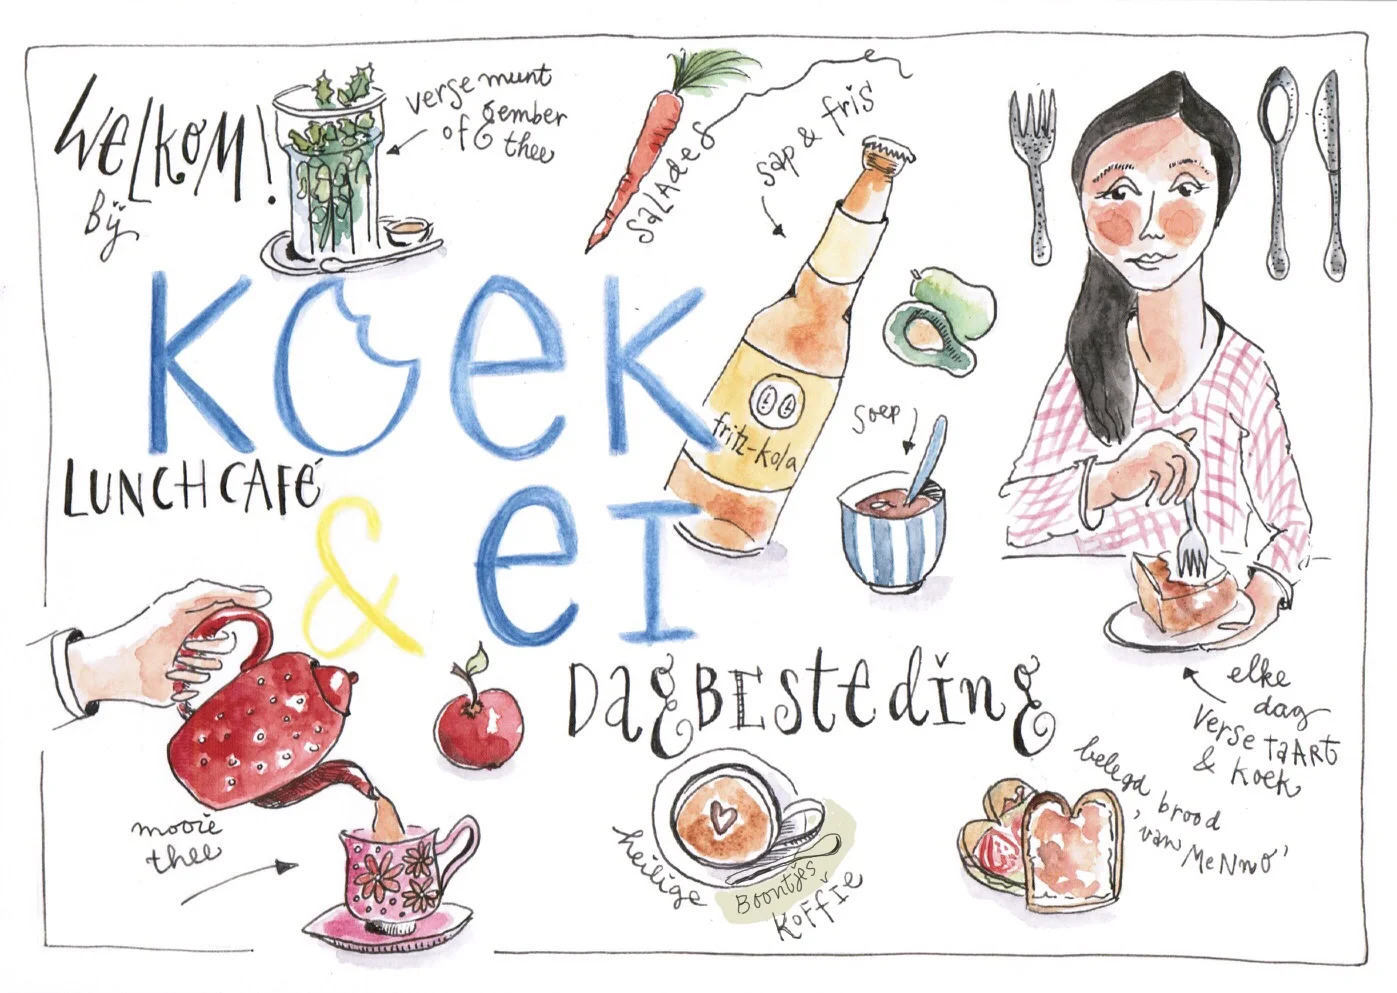 WELKOM!
Bij
verse munt
gember
of thee
SALAdes
sap & fris
KOEK
LUNCHCAFÉ
& EI
fritz-kola
soep
DAGBESTEDING
mooie
thee
heilige
Boontjes
KOFFIE
elke
dag
verse TAART
& KOEK
belegd brood
'van MeNNo'